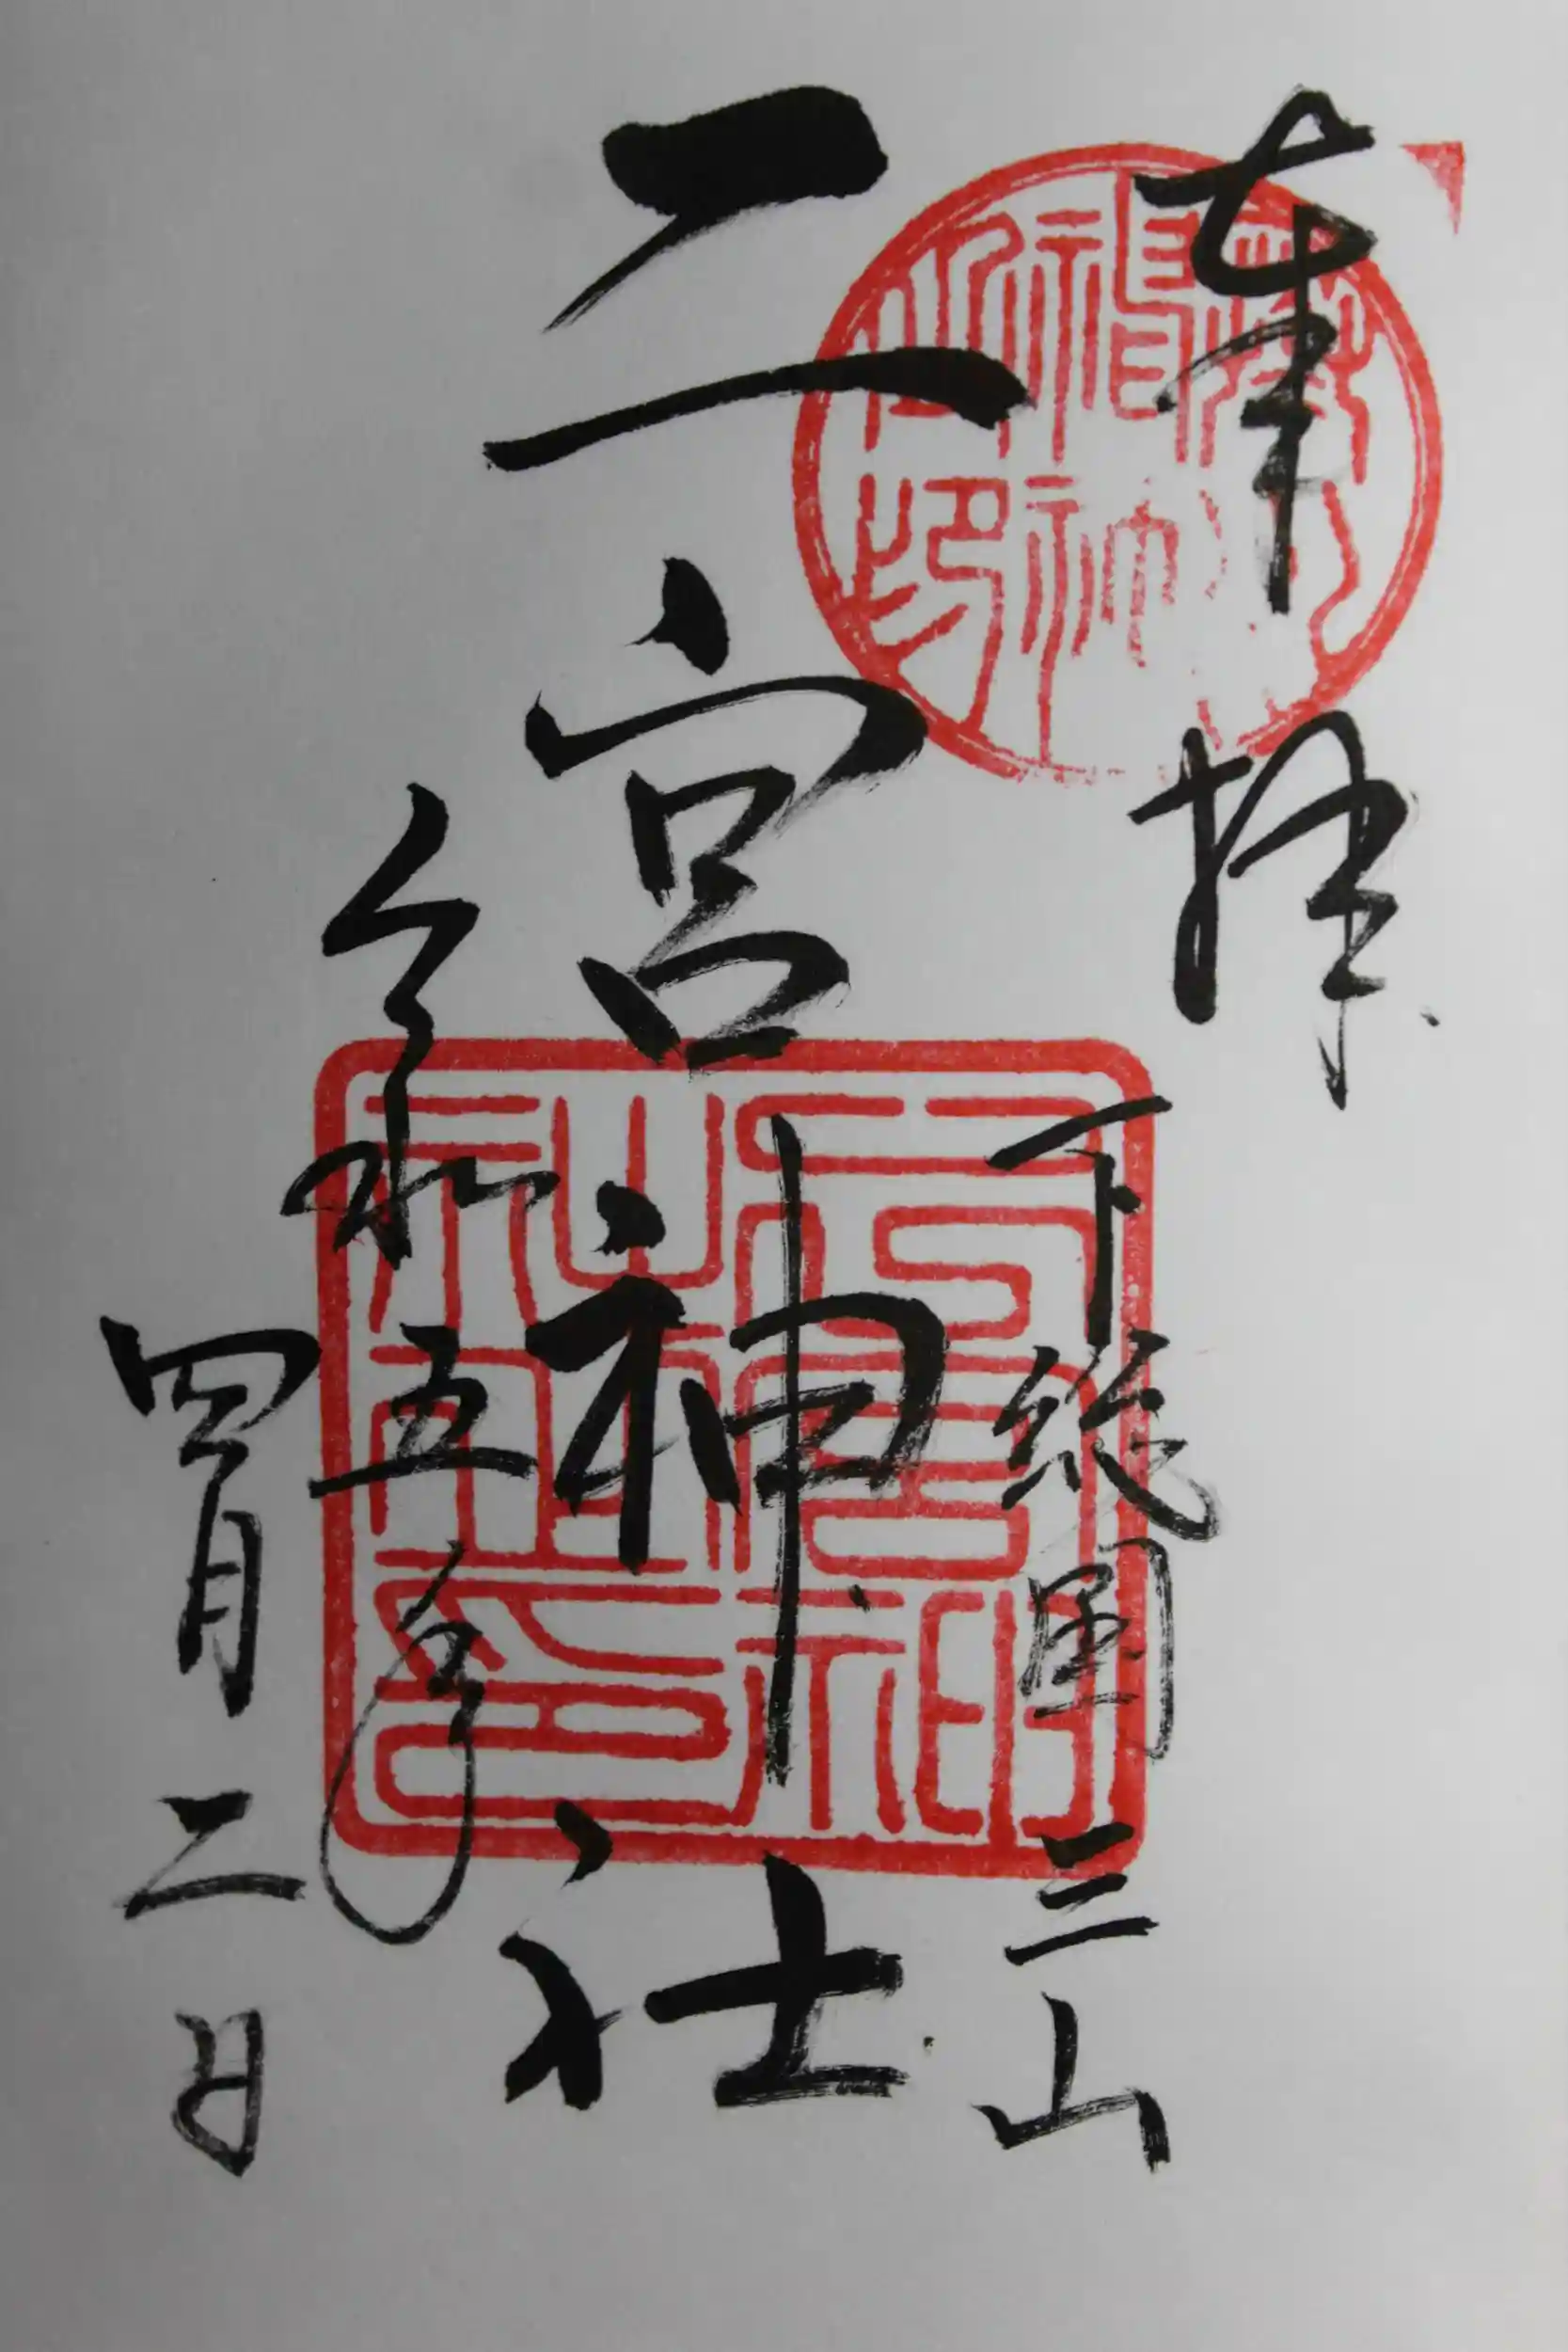 奉拝
下総国三山
二宮神社
令和五年
四月二日